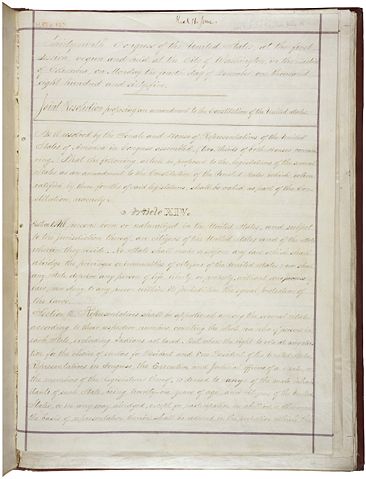 Congress of the United States, at the first
Session, begun and held at the City of Washington, in the District
of Columbia, on Monday the fourth day of December, one thousand
eight hundred and sixty-five.
Joint Resolution proposing an amendment to the Constitution of the United States.
Be it resolved by the Senate and House of Representatives of the United
States of America in Congress assembled, (two thirds of both Houses concurring,)
That the following article be proposed to the legislatures of the several
States as an amendment to the Constitution of the United States, which, when
ratified by three fourths of said legislatures, shall be valid as part of the Constitution,
namely:
Article XIV.
Section 1. All persons born or naturalized in the United States, and subject
to the jurisdiction thereof, are citizens of the United States and of the State
wherein they reside. No State shall make or enforce any law which shall
abridge the privileges or immunities of citizens of the United States; nor shall
any State deprive any person of life, liberty, or property, without due process of
law; nor deny to any person within its jurisdiction the equal protection of
the laws.
Section 2. Representatives shall be apportioned among the several States
according to their respective numbers, counting the whole number of persons in
each State, excluding Indians not taxed. But when the right to vote at any election
for the choice of electors for President and Vice President of the United States,
Representatives in Congress, the Executive and Judicial officers of a State, or
the members of the Legislature thereof, is denied to any of the male inhabitants
of such State, being twenty-one years of age, and citizens of the United
States, or in any way abridged, except for participation in rebellion, or other crime,
the basis of representation therein shall be reduced in the proportion which the